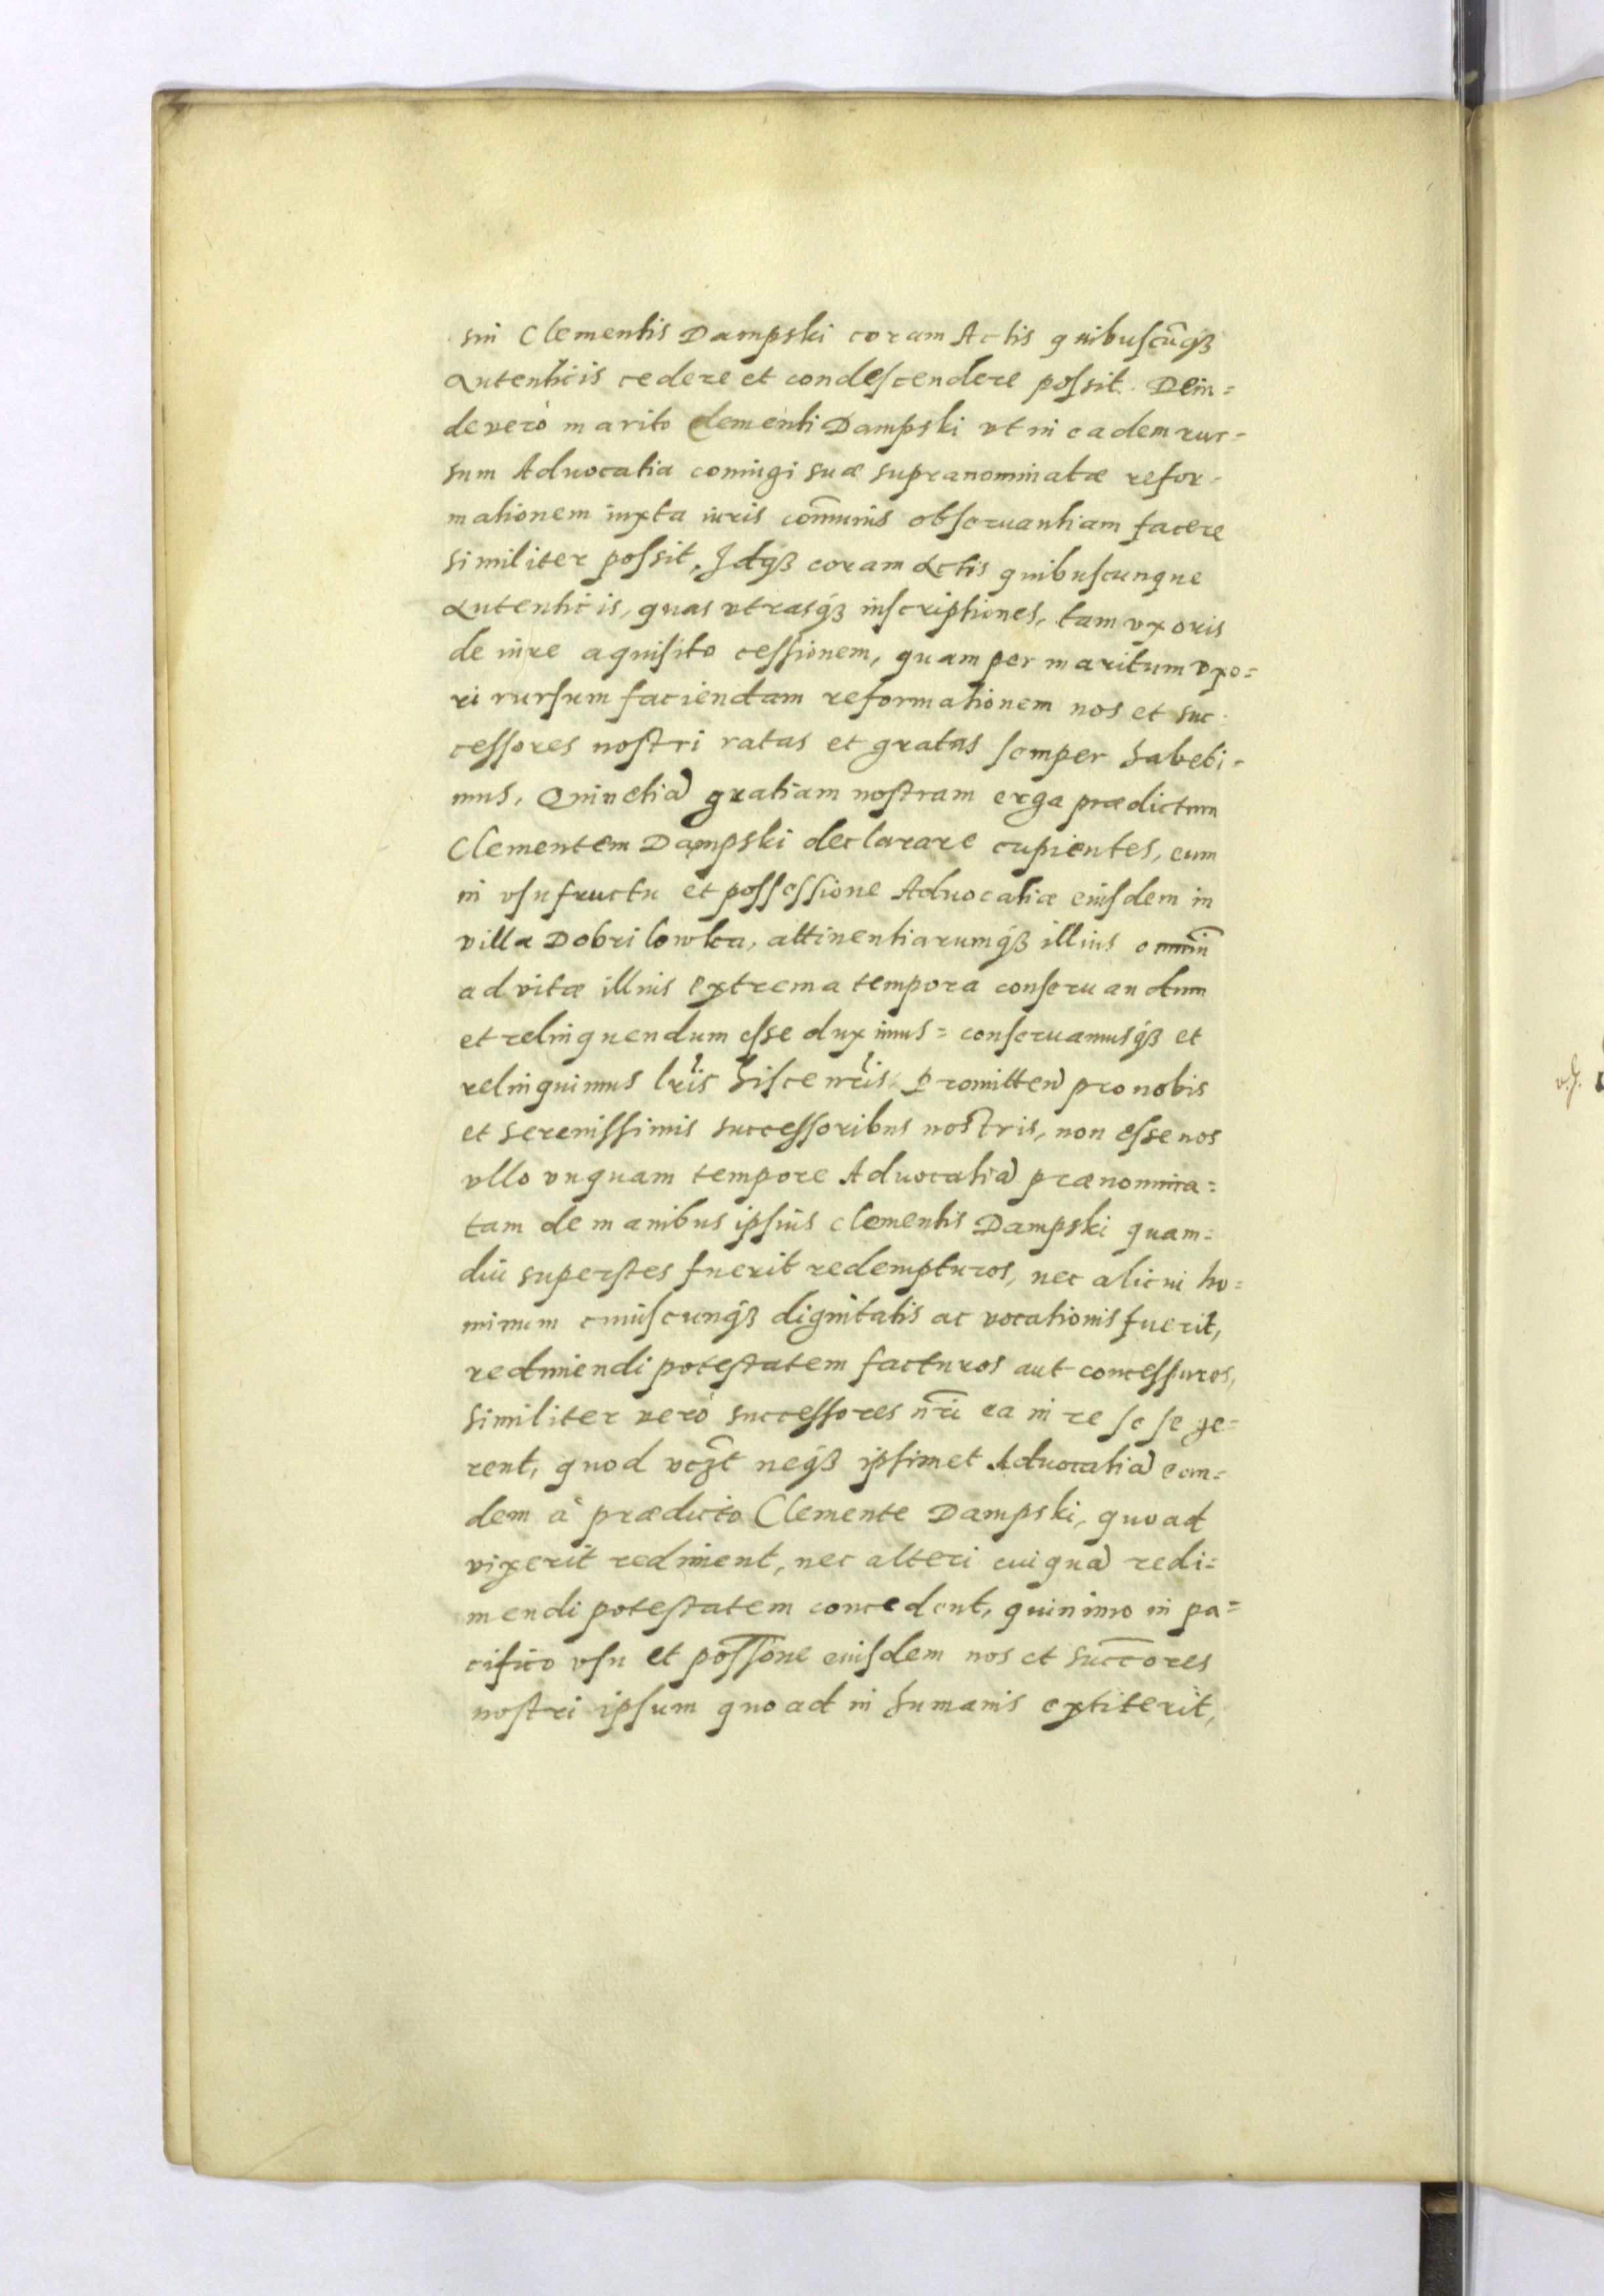 sui Clementis Dampski coram Actis quibuscūqȝ
Autenticis cedere et condescendere possit. Dein=
de verò marito Clementi Dampski vt in eadem rur=
sum Aduocatia coniugi suæ supranominatæ refor-
mationem iuxta iuris com̄unis obseruantiam facere
similiter possit, Idqȝ coram Actis quibuscunque
Autenticis, quas vtrasqȝ inscriptiones, tam vxoris
de iure aquisito cessionem, quam per maritum vxo=
ri rursum faciendam reformationem nos et suc-
cessores nostri ratas et gratas semper habebi=
mus, Quinetiā gratiam nostram erga prædictum
Clementem Dampski declarare cupientes, eum
in vsufructu et possessione Aduocatiæ eiusdem in
villa Dobrilowka, attinentiarumqȝ illius omniū
ad vitæ illius extrema tempora conseruandum
et relinquendum esse duximus= conseruamusqȝ et
relinquimus lris hisce nris, Promitteñ pro nobis
et Serenissimis successoribus nostris, non esse nos
vllo vnquam tempore Aduocatiā prænomina=
tam de manibus ipsius Clementis Dampski quam=
diu superstes fuerit redempturos, nec alicui ho=
minum cuiuscunqȝ dignitatis ac vocationis fuerit,
redimendi potestatem facturos aut concessuros,
similiter verò successores nr̄i ea in re se se ge=
rent, quod neqȝ ipsimet Aduocatiā eam=
dem à prædicto Clemente Dampski, quoad
vixerit rediment, nec alteri cuiquā redi=
mendi potestatem concedent, quinimo in pa=
cifico vsu et poss̄one eiusdem nos et succ̄ores
nostri ipsum quoad in humanis extiterit,